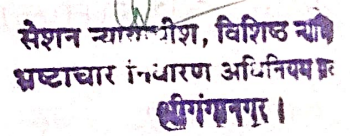 सेशन न्यायाधीश, विशिष्ठ न्याया
भ्रष्टाचार निवारण अधिनियम प्र
श्रीगंगानगर ।